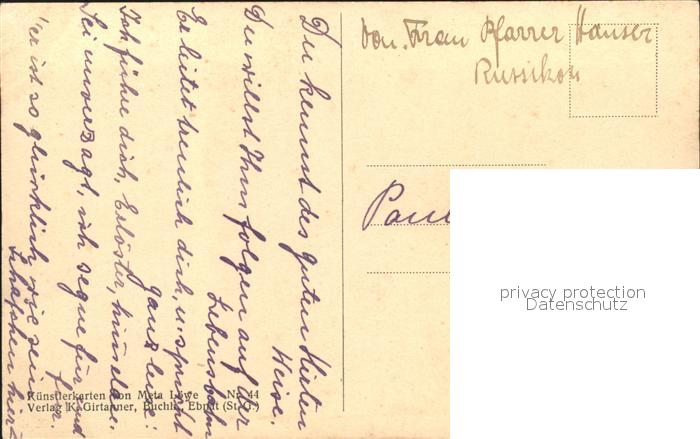 Du kennst des guten Hirten
Weise.
Du willst Ihm folgen auf der
Lebensbahn
Er leitet treulich dich, u. spricht
ganz leise:
Ich führe dich, Erlöster,
Sei unverzagt, ich segne für und
für.
er ist so glücklich wie sein
Schäfchen hier
Künstlerkarten von Meta Löwe Nr. 44
Verlag K. Girtanner, Buchh., Ebnat (St. G.)
Von. Frau Pfarrer Hauser
Russikon
Paul
privacy protection
Datenschutz